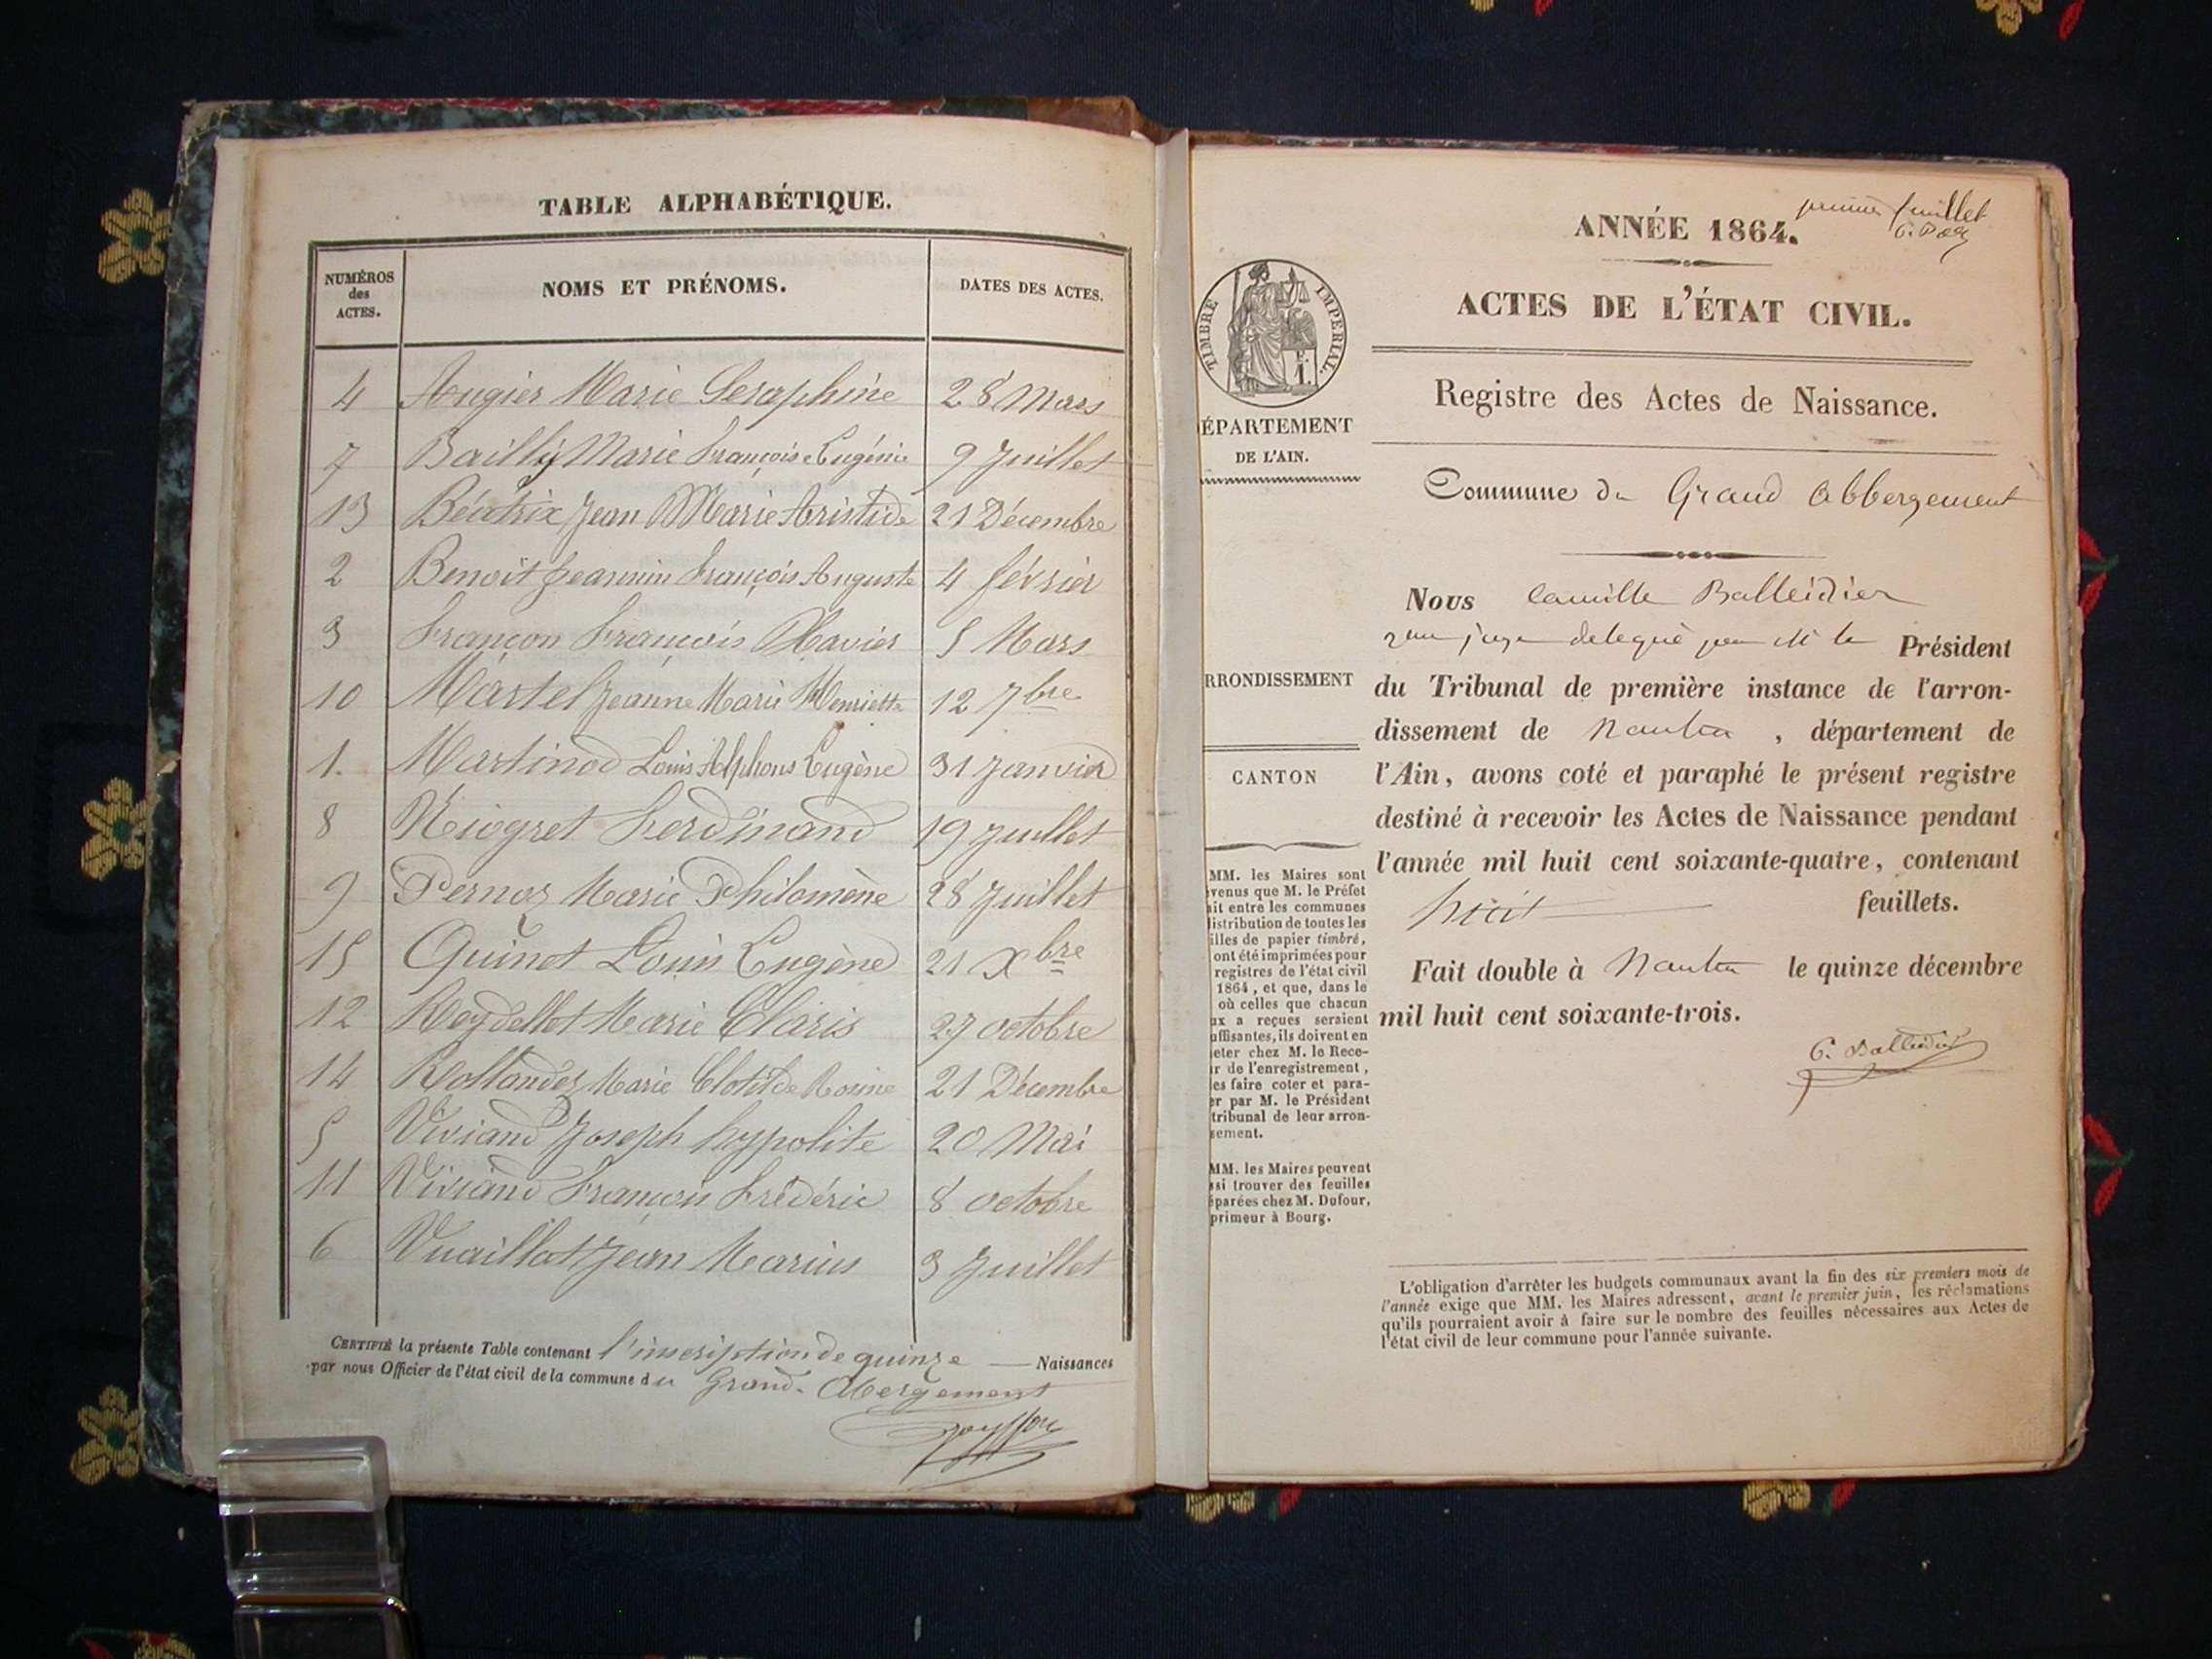 TABLE ALPHABÉTIQUE.
NUMÉROS des ACTES. NOMS ET PRÉNOMS. DATES DES ACTES.
4 Augier Marie Seraphine 28 Mars
7 Bailly Marie Françoise Eugénie 9 Juillet
13 Béatrix Jean Marie Aristide 21 Décembre
2 Benoit Jeannin François Auguste 4 février
3 Françon François Xavier 5 Mars
10 Martel Jeanne Marie Henriette 12 7bre
1. Martinod Louis Alphons Eugène 31 Janvier
8 Niogret Ferdinand 19 Juillet
9 Pernoz Marie Philomène 28 Juillet
15 Quinot Louis Eugène 21 Xbre
12 Reydellet Marie Claris 27 octobre
14 Rollandez Marie Clotilde Rosine 21 Décembre
5 Viviand Joseph hyppolite 20 Mai
11 Viviand François Frédéric 8 octobre
6 Vuaillat Jean Marius 3 Juillet
CERTIFIÉ la présente Table contenant l'inscription de quinze — Naissances
par nous Officier de l'état civil de la commune du Grand-Abergement
premier feuillet
ANNÉE 1864.
ACTES DE L'ÉTAT CIVIL.
TIMBRE IMPERIAL.
Registre des Actes de Naissance.
ÉPARTEMENT
DE L'AIN.
Commune du Grand Abbergement
Nous Camille Balleidier
juge delegué par M le Président
RRONDISSEMENT
du Tribunal de première instance de l'arron-
dissement de Nantua, département de
CANTON
l'Ain, avons coté et paraphé le présent registre
destiné à recevoir les Actes de Naissance pendant
l'année mil huit cent soixante-quatre, contenant
huit feuillets.
Fait double à Nantua le quinze décembre
mil huit cent soixante-trois.
C. Balleidier
MM. les Maires sont
venus que M. le Préfet
ait entre les communes
distribution de toutes les
illes de papier timbré,
ont été imprimées pour
registres de l'état civil
1864, et que, dans le
où celles que chacun
ux a reçues seraient
uffisantes, ils doivent en
eter chez M. le Rece-
r de l'enregistrement,
es faire coter et para-
er par M. le Président
tribunal de leur arron-
sement.
MM. les Maires peuvent
ssi trouver des feuilles
éparées chez M. Dufour,
primeur à Bourg.
L'obligation d'arrêter les budgets communaux avant la fin des six premiers mois de
l'année exige que MM. les Maires adressent, avant le premier juin, les réclamations
qu'ils pourraient avoir à faire sur le nombre des feuilles nécessaires aux Actes de
l'état civil de leur commune pour l'année suivante.